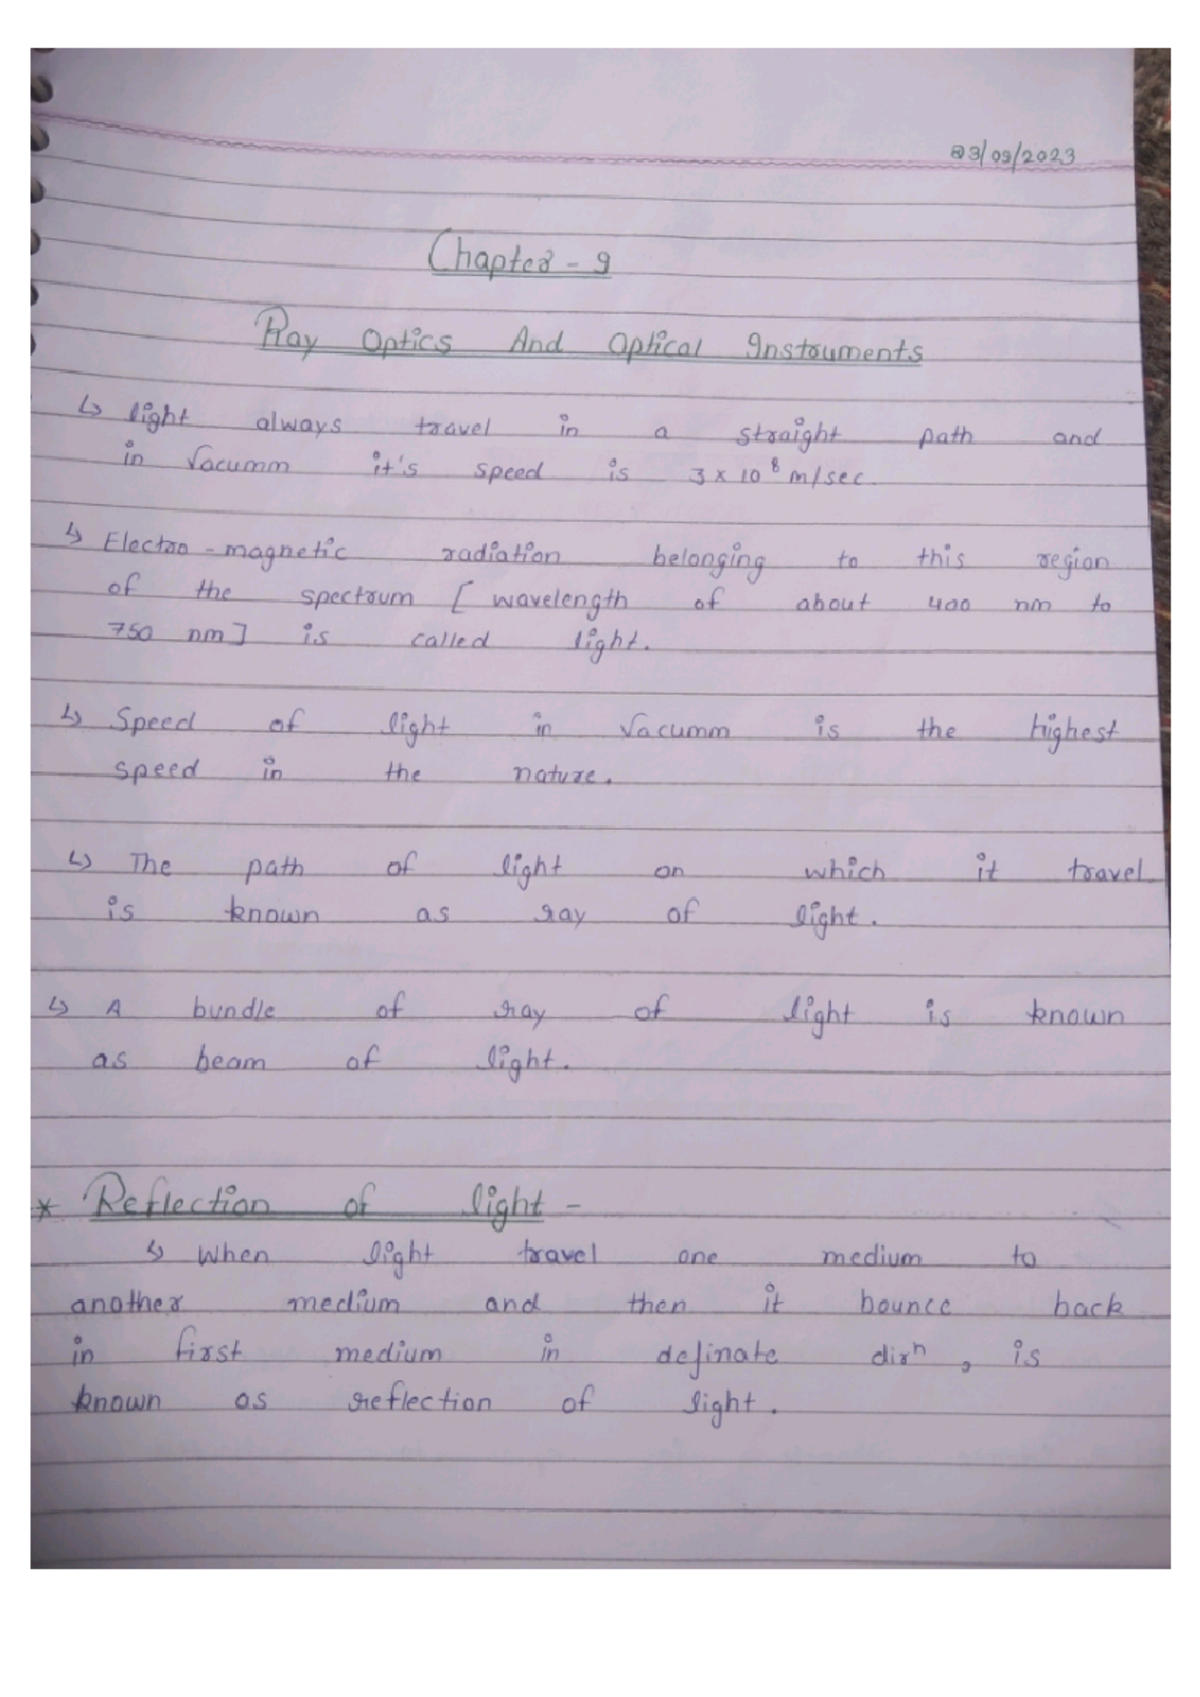 23/09/2023
Chapter - 9
Ray Optics And Optical Instruments
↳ light always travel in a straight path and
in Vacumm it's speed is 3 x 10⁸ m/sec.
↳ Electro - magnetic radiation belonging to this region
of the spectrum [ wavelength of about 400 nm to
750 nm ] is called light.
↳ Speed of light in Vacumm is the highest
speed in the nature.
↳ The path of light on which it travel
is known as ray of light.
↳ A bundle of ray of light is known
as beam of light.
* Reflection of light -
↳ When light travel one medium to
another medium and then it bounce back
in first medium in definate dirⁿ, is
known as reflection of light.